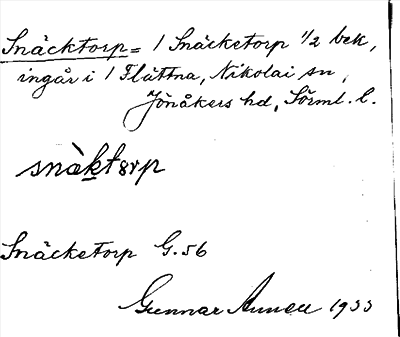 Snäcktorp = 1 Snäcketorp 1/2 bek,
ingår i 1 Flättna, Nikolai sn,
Jönåkers hd, Sörml. l.
snàktɜrp
Snäcketorp G.56
Gunnar 1933